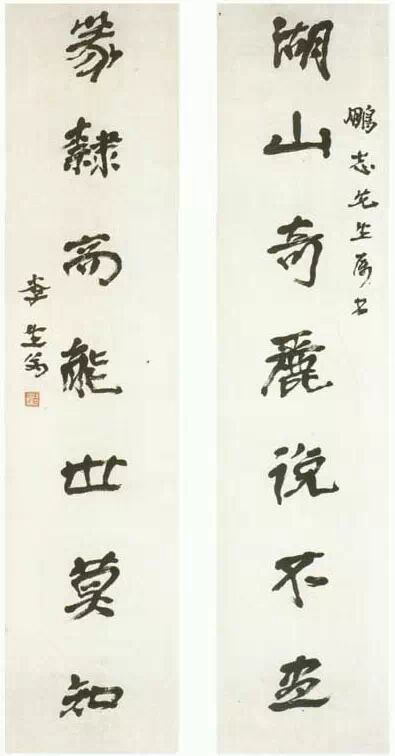 湖山奇麗說不盡
鵬志先生屬書
篆隸高能世莫知
李生翁